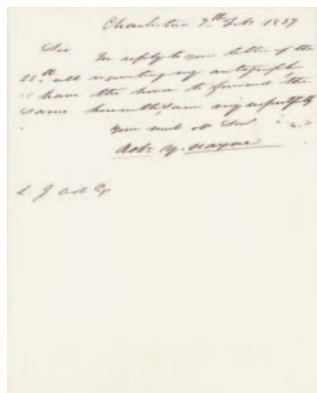 Charleston 7th Feb 1837
Sir In reply to your letter of the
25th ult requesting my autograph
I have the honor to forward the
same herewith, & am very respectfully
Your most ob Ser
Robt Y. Hayne
Esq